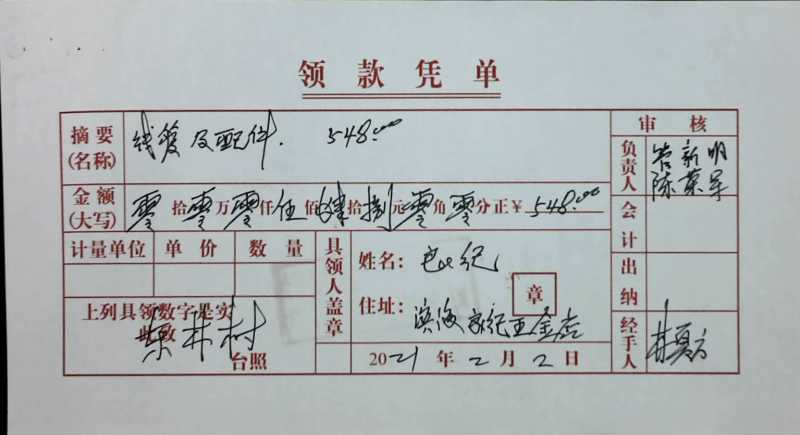 领款凭单
摘要(名称) 线管及配件. 548.00
审核
负责人 管新明
陈荣军
金额(大写) 零拾零万零仟伍佰肆拾捌元零角零分正¥548.00
会计
计量单位 单价 数量
具领人盖章
姓名:
出纳
章
住址: 滨海
上列具领数字是实
村
台照
2021年2月2日
经手人 林